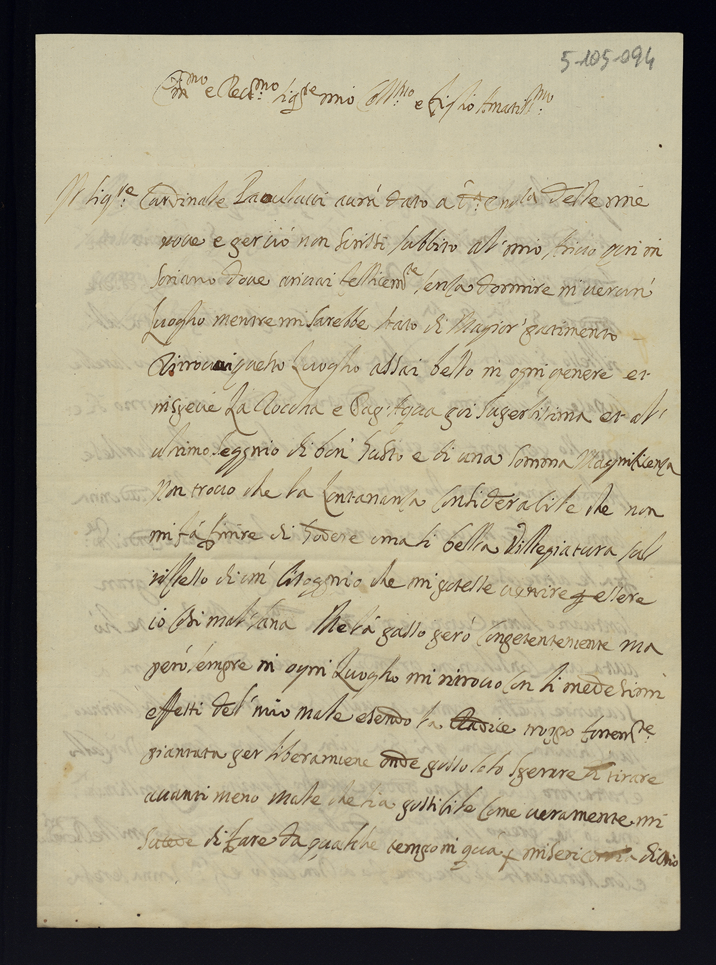 5-105-094
Em:mo e Rev:mo Sig:re mio Coll:mo e Figlio Amatiss:mo
Il Sig:re Cardinale Paulucci avrà dato a V:ra Em:za delle mie
nove e perciò non scrissi subbito al mio arrivo qui in
Soriano dove arivai felicem:te senza dormire in verun'
Luogho mentre mi sarebbe stato di magior patimento
Ritrovai questo Luogho assai bello in ogni genere et
in specie La Roccha e Pap:Aqua poi superbissima et all'
ultimo seggnio di bon' Gusto e di una somma Magnificenza
Non trovo che la Lontananza considerabile che non
mi fà finire di Godere una si bella Villegiatura sul
riflesso di un' bisoggnio che mi potesse avenire p essere
io così mal sana Me la passo però competentemente ma
però sempre in ogni Luogho mi ritrovo con li medesimi
effetti del mio male esendo la Radice troppo fortem:te
piantata per liberarmene onde posso solo sperare di tirare
avanti meno male che sia possibile come veramente mi
Sucede di fare da qualche tempo in qua p misericordia di Dio